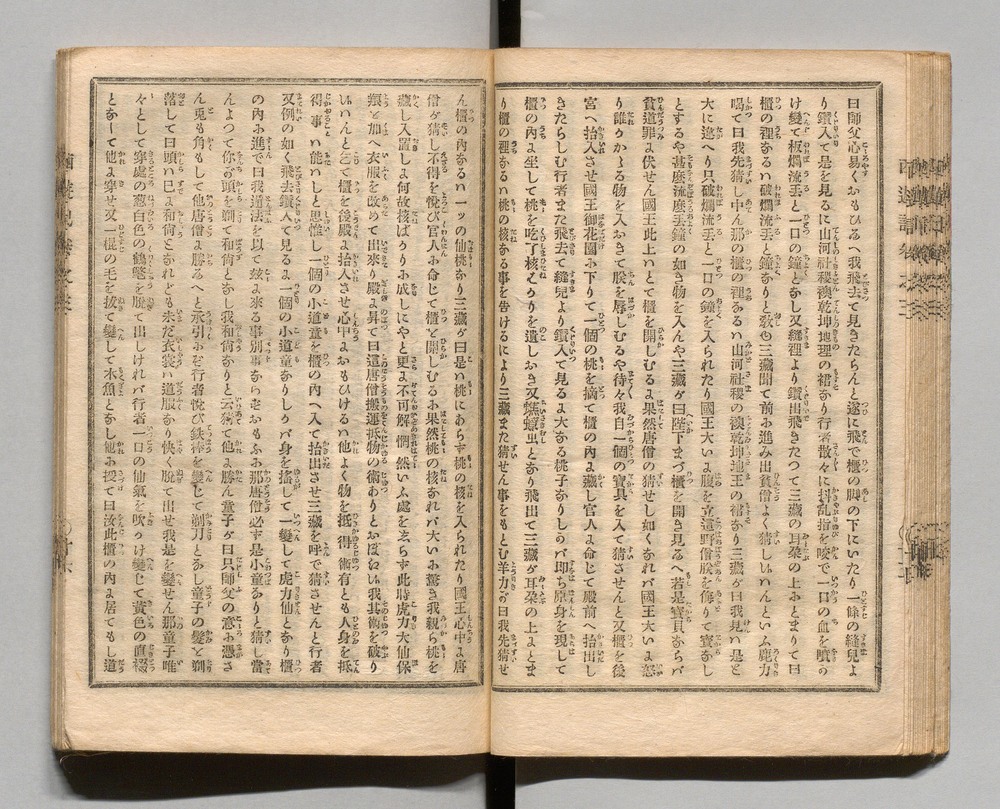 曰師父心易くおもひ玉へ我飛去て見きたらんと遂に飛で櫃の脚の下にいたり一條の縫兒よ
り鑽入て是を見るに山河社稷襖乾坤地理の裙あり行者散々に抖乱指を咬で一口の血を噴の
け變て板爛流丟と一口の鐘となし又縫裡より鑽出飛きたつて三藏の耳朶の上にとまりて曰
櫃の裡なるハ破爛流丟と鐘なりと教ゆ三藏聞て前に進み出貧僧よく猜しいハんといふ鹿力
喝て曰我先猜し中ん那の櫃の裡なるハ山河社稷の襖乾坤地王の裙なり三藏が曰我見ハ是と
大に違へり只破爛流丟と一口の鐘を入られたり國王大いに腹を立這野僧朕を侮りて寶なし
とするや甚麼流麼丟鐘の如き物を入んや三藏が曰陛下まづ櫃を開き見るへ若是寶貝ならバ
貧道罪に伏せん國王此上ハとて櫃を開しむるに果然唐僧の猜せし如くなれバ國王大いに怒
り誰かかゝる物を入おきて朕を辱しむるや待々我自一個の寶具を入て猜させんと又櫃を後
宮へ抬入させ國王御花園に下りて一個の桃を摘て櫃の内に藏し官人に命じて殿前へ抬出し
きたらしむ行者また飛去て縫兒より鑽入て見るに大なる桃子なりしかバ即ち原身を現して
櫃の内に坐して桃を吃了核バかりを遺しおき又蟭蟟虫となり飛出て三藏が耳朶の上にとま
り櫃の裡なるハ桃の核なる事を告けるにより三藏また猜せん事をもとむ羊力が曰我先猜せ
ん櫃の内なるハ一ッの仙桃なり三藏が曰是ハ桃にあらず桃の核を入られたり國王心中に唐
僧が猜し不得を悅び官人に命じて櫃を開しむるに果然桃の核なれバ大いに驚き我親ら桃を
藏し入置しに何故核ばかりに成しにやと更に不可解惘然いふ處をしらず此時虎力大仙保
養を加へ衣服を改めて出來り殿に昇て曰這唐僧搬運抵物の術ありとおぼゆれバ我其術を破り
いハんとて櫃を後殿に抬入させ心中におもひけるハ他よく物を抵得術有とも人身を抵
得事ハ能ハじと思惟し一個の小道童を櫃の内へ入て抬出させ三藏を呼で猜させんと行者
又例の如く飛去鑽入て見るに一個の小道童なりしかバ身を搖して一變して虎力仙となり櫃
の内に進で曰我道法を以て玆に來る事別事ならずおもふに那唐僧必ず是小童なりと猜し當
んよつて你が頭を剃て和尚となし我和尚なりと云猜て他に勝ん童子が曰只師父の意に憑さ
ん兎も角もして他唐僧に勝るへと承引にぞ行者悅び鉄棒を變じて剃刀となし童子の髮を剃
落して曰頭ハ已に和尚となれども未だ衣裳ハ道服なり快く脫て出せ我是を變せん那童子唯
々として穿處の葱白色の鶴氅を脫て出しけれバ行者一口の仙氣を吹つけ變じて黃色の直裰
となして他に穿せ又一棍の毛を拔て變して木魚となし他に授て曰汝此櫃の內に居てもし道